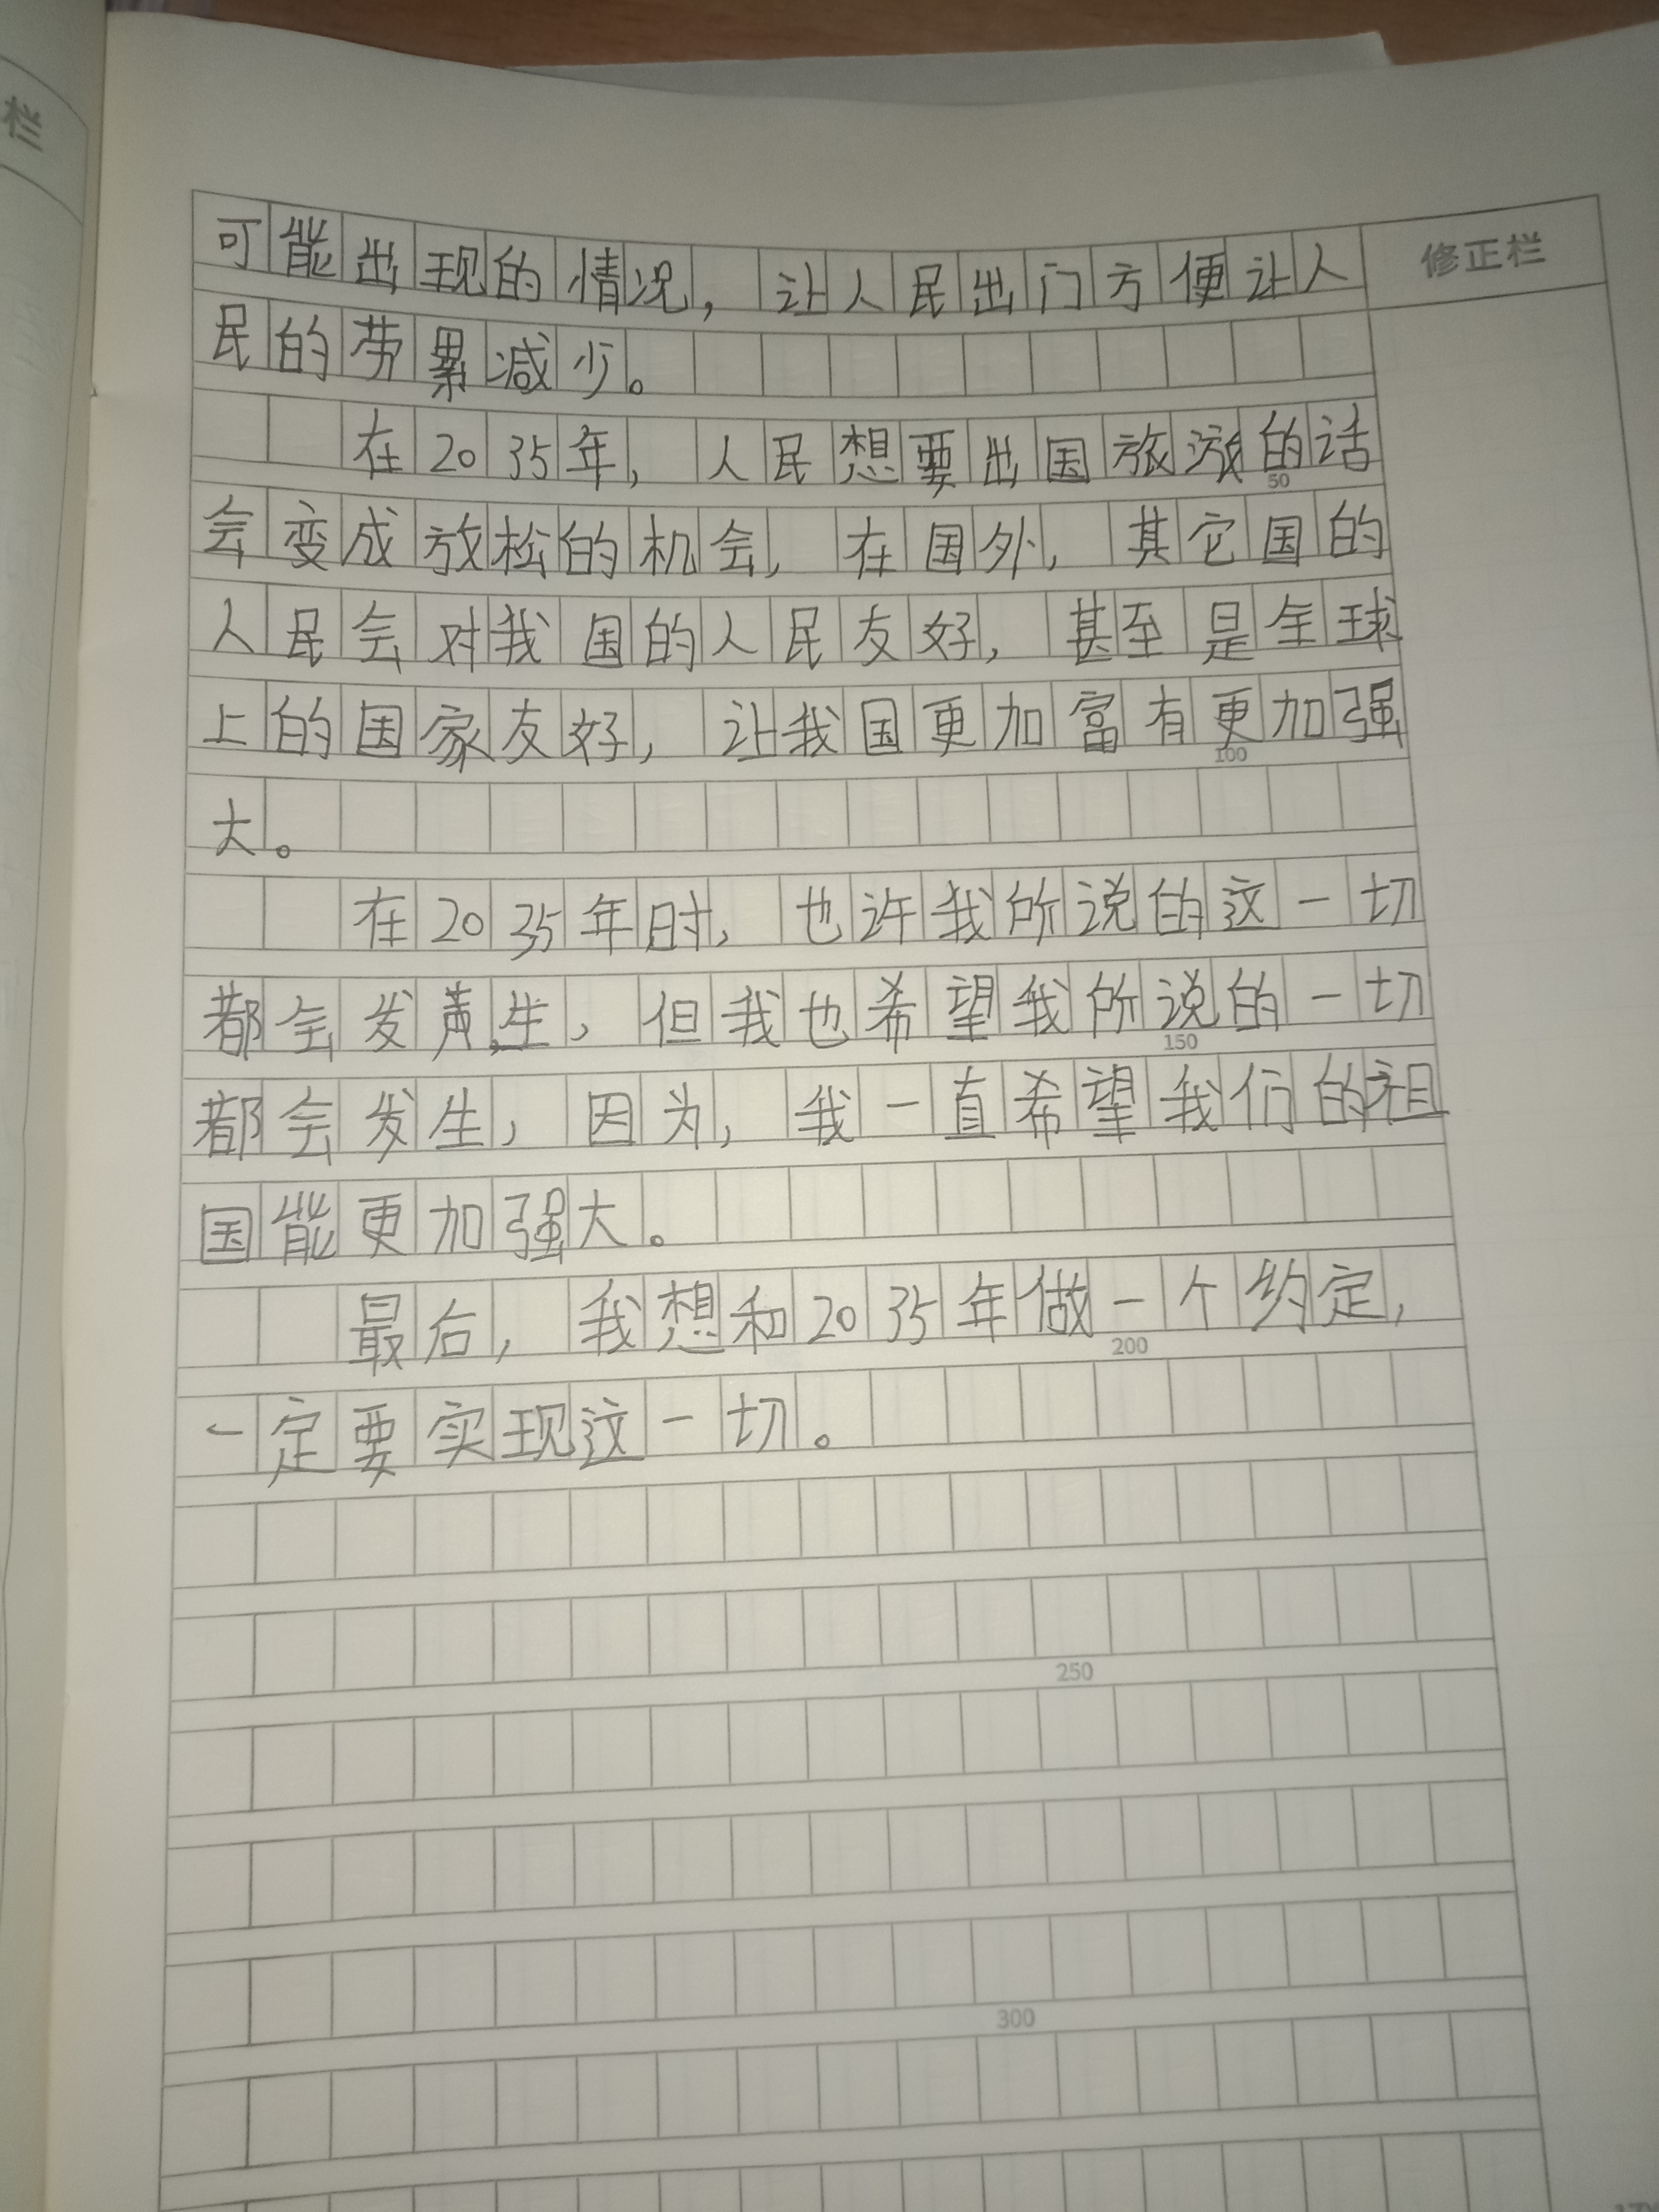 栏
修正栏
可能出现的情况，让人民出门方便让人
民的劳累减少。
在2035年，人民想要出国旅游的话
50
会变成放松的机会，在国外，其它国的
人民会对我国的人民友好，甚至是全球
上的国家友好，让我国更加富有更加强
100
大。
在2035年时，也许我所说的这一切
都会发生，但我也希望我所说的一切
150
都会发生，因为，我一直希望我们的祖
国能更加强大。
最后，我想和2035年做一个约定，
200
一定要实现这一切。
250
300